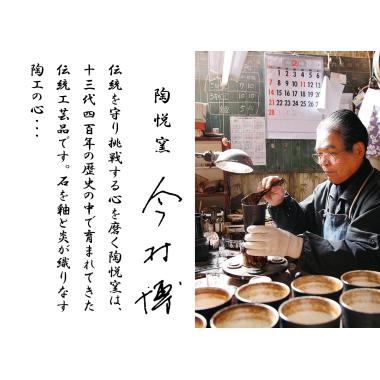 陶悦窯
今村博
伝統を守り挑戦する心を磨く陶悦窯は、
十三代四百年の歴史の中で育まれてきた
伝統工芸品です。石を釉と炎が織りなす
陶工の心・・・
2
1 2 3 4 5 6
7 8 9 10 11 12 13
14 15 16 17 18 19 20
21 22 23 24 25 26 27
28